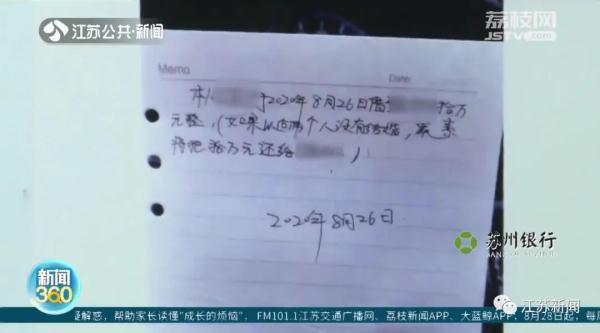 江苏公共·新闻
荔枝网
JSTV.com
Memo
Date:
本人 于2020年8月26日借 拾万
元整,(如果以后两个人没有结婚,
将把拾万元还给 )
2020年8月26日
苏州银行
BANK OF SUZHOU
新闻
360
江苏新闻
疑解惑,帮助家长读懂“成长的烦恼”, FM101.1江苏交通广播网、荔枝新闻APP、大蓝鲸APP,8月28日起,每